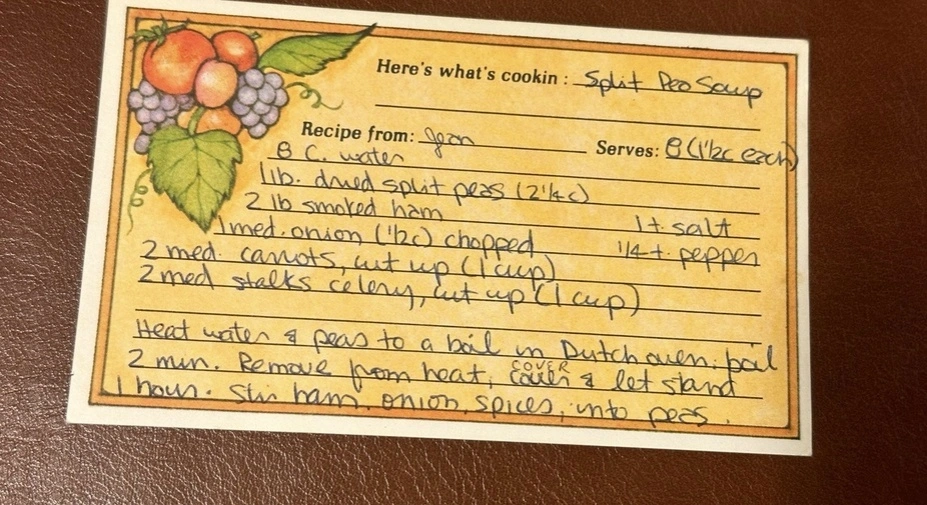 Here's what's cookin: Split Pea Soup
Recipe from: Jean Serves: 8 (1½c each)
8 C. water
1 lb. dried split peas (2¼ c)
2 lb smoked ham 1 t. salt
1 med. onion (½c) chopped ¼ t. pepper
2 med. carrots, cut up (1 cup)
2 med stalks celery, cut up (1 cup)
Heat water & peas to a boil in Dutch oven. boil
2 min. Remove from heat, cover COVER & let stand
1 hour. Stir ham, onion, spices, into peas.